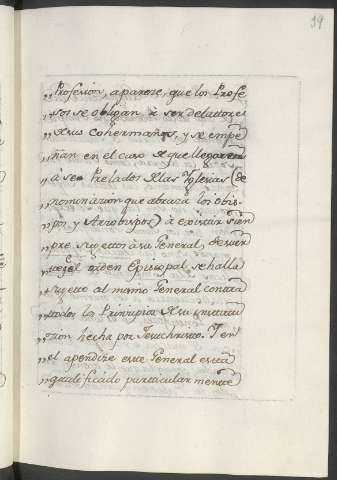 39
„Profesion, aparece, que los Profe
„sos se obligan à ser delatores
„de sus cohermanos, y se empe
„ñan en el caso de que llegaren
„à ser Prelados de las Yglesias (de
„nominacion que abraza los obis-
„pos y Arzobispos) à existir siem
„pre sugettos à su General, de suer
„te que el orden Episcopal se halla
„sugeto al mismo General contra
„todos los Principios de su institu
„cion hecha por Jesuchristo. Y en
„el apendice este General està
„gualificado particularmente